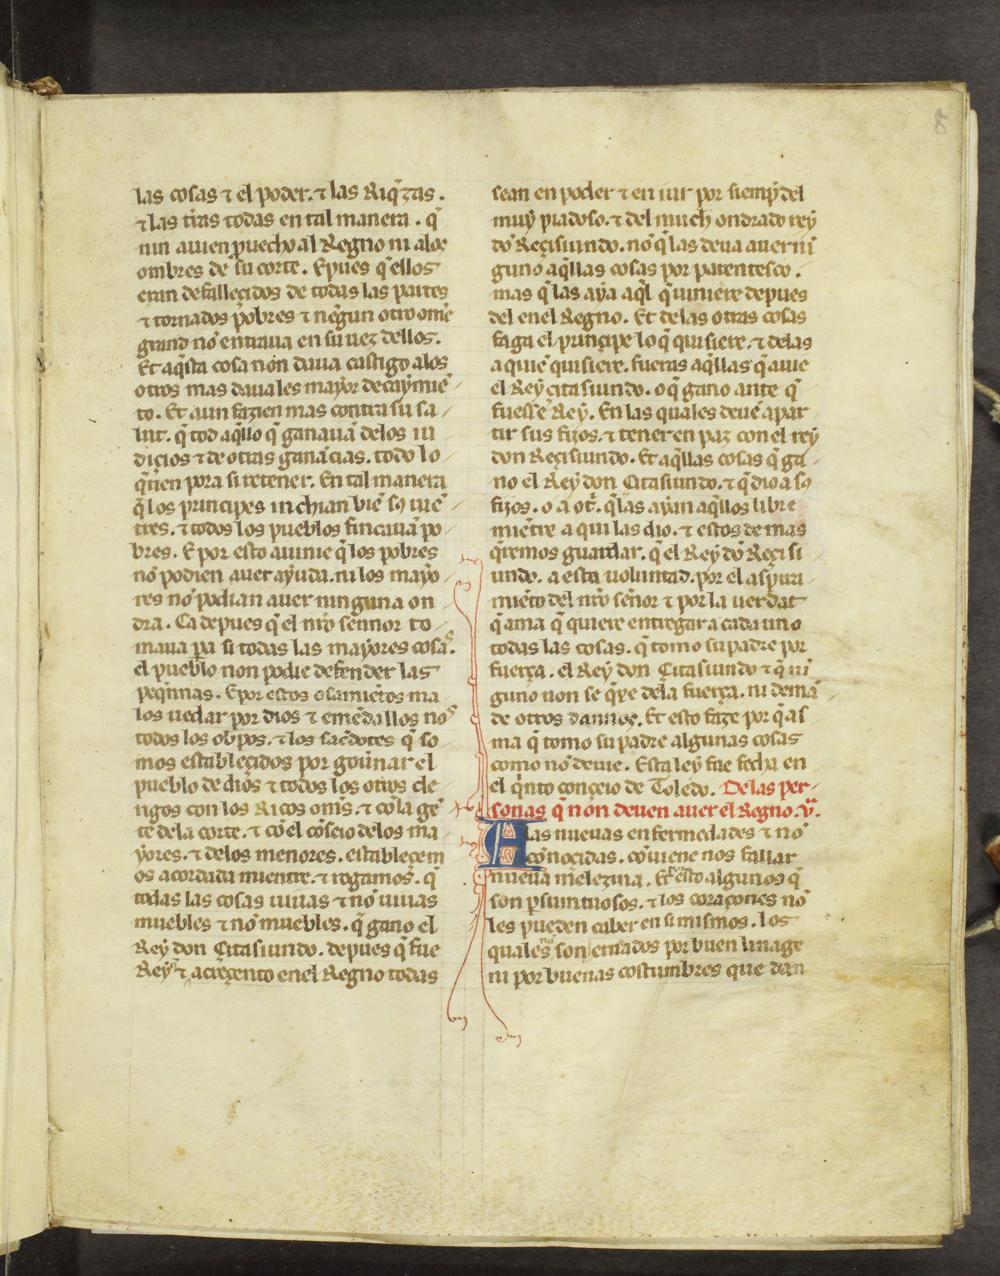 8
las cosas ⁊ el poder. ⁊ las Riq̃zas.
⁊ las tr̃as todas en tal manera. q̃
nin auien p̃uecho al Regno ni alos
ombres de su corte. Epues q̃ ellos
eran defalleçidos de todas las partes
⁊ tornados pobres ⁊ negun otro om̃e
grand nõ entraua en su uez dellos.
Et aq̃sta cosa non daua castigo alos
otros mas dauales mayor decaymiẽ
to. Et aun fazien mas contra su sa
lut. q̃ tod aq̃llo q̃ ganauã delos iu
diçios ⁊ de otras ganãcias. todo lo
q̃rien pora si retener. En tal manera
q̃ los prinçipes inchian biẽ sꝯ uiẽ
tres. ⁊ todos los pueblos fincauã po
bres. E por esto auinie q̃ los pobres
nõ podien auer ayuda. ni los mayo
res nõ podian auer ninguna on
dra. Ca depues q̃ el nr̃o sennor to
maua pa si todas las mayores cosas.
el pueblo non podie defender las
peq̃nnas. E por estos
los uedar por dios ⁊ emẽdallos nos
todos los ob̃pos. ⁊ los saçdotes q̃ so
mos estableçidos por gouñar el
pueblo de dios ⁊ todos los otros cle
rigos con los Ricos om̃s. ⁊ cõ la gẽ
te dela corte. ⁊ cõ el cõseio delos ma
yores. ⁊ delos menores. estableçem
os acordada mientre. ⁊ rogamos. q̃
todas las cosas uiuas ⁊ nõ uiuas
muebles ⁊ nõ muebles. q̃ gano el
Rey don Citasiundo. depues q̃ fue
Rey ⁊ acreçento enel Regno todas
sean en poder ⁊ en iur por siemp̃ del
muy piadoso. ⁊ del much ondrado rey
dõ Reçisiundo. nõ q̃ las deua auer nĩ
guno aq̃llas cosas por parentesco.
mas q̃ las aya aq̃l q̃ uiniere depues
del enel Regno. Et delas otras cosas
faga el prinçipe lo q̃ quisiere. ⁊ delas
a quiẽ quisiere. fueras aq̃llas q̃ auie
el Rey çitasiundo. o q̃ gano ante q̃
fuesse Rey. En las quales deuẽ apar
tir sus fijos. ⁊ tener en paz con el rey
don Reçisiundo. Et aq̃llas cosas q̃ ga
no el Rey don Citasiundo. ⁊ q̃ dio a sꝯ
fijos. o a ot̃. q̃ las ayan aq̃llos libre
miẽtre a qui las dio. ⁊ estos de mas
q̃remos guardar. q̃ el Rey dõ Reçisi
undo. a esta uoluntad. por el aspiri
miẽto del nr̃o señor ⁊ por la uerdat
q̃ ama q̃ quiere entregar a cada uno
todas las cosas. q̃ tomo su padre por
fuerça. el Rey don Citasiundo ⁊ q̃ nĩ
guno non se q̃xe dela fuerça. ni demã
de otros dannos. Et esto faze por q̃ as
ma q̃ tomo su padre algunas cosas
como nõ deuie. Esta ley fue fecha en
el q̃nto conçeio de Toledo. Delas per
sonas q̃ non deuen auer el Regno. v.
A las nueuas enfermedades ⁊ nõ
cõnocidas. cõuiene nos fallar
nueua melezina. Et esto algunos q̃
son p̃suntuosos. ⁊ los coraçones nõ
les pueden caber en si mismos. los
quales son por buen linage
ni por buenas costumbres que dan